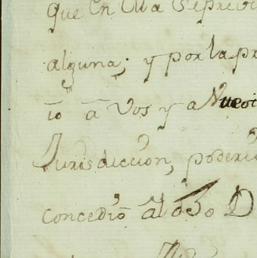 que en ella se prev
alguna; y por la pr
io à Vos y a Nues
Jurisdiccion, poderi
concedió al dho D